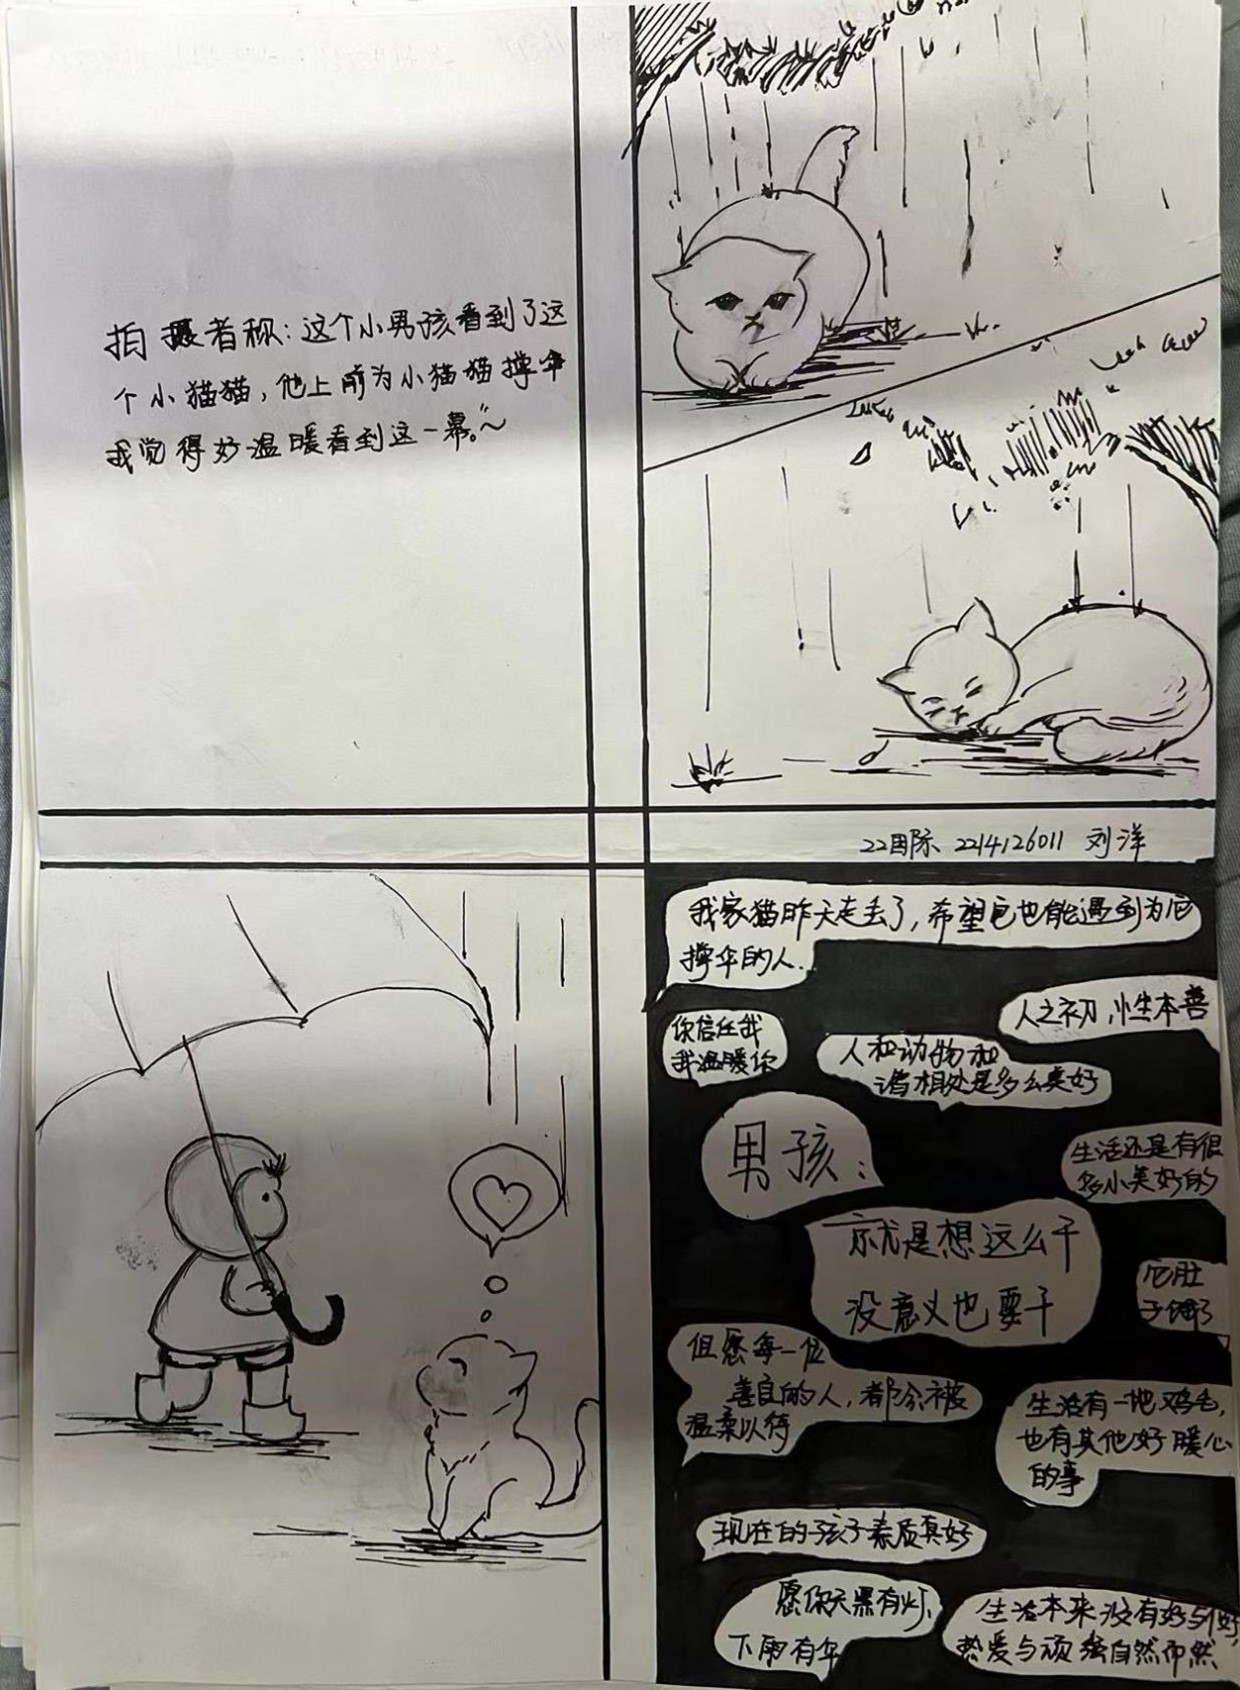 拍摄者称:这个小男孩看到了这
个小猫猫,他上前为小猫猫撑伞
我觉得好温暖看到这一幕。"~
22国际 2214126011 刘洋
我家猫昨天走丢了,希望它也能遇到为它
撑伞的人..
人之初,性本善
你信任我
我温暖你
人和动物和
谐相处是多么美好
男孩:
生活还是有很
多小美好的
就是想这么干
没意义也要干
它肚
子饿了
但愿每一位
善良的人,都会被
温柔以待
生活有一地鸡毛,
也有其他好暖心
的事
现在的孩子素质真好
愿你天黑有灯,
下雨有伞
生活本来没有好与不好,
热爱与顽强自然而然